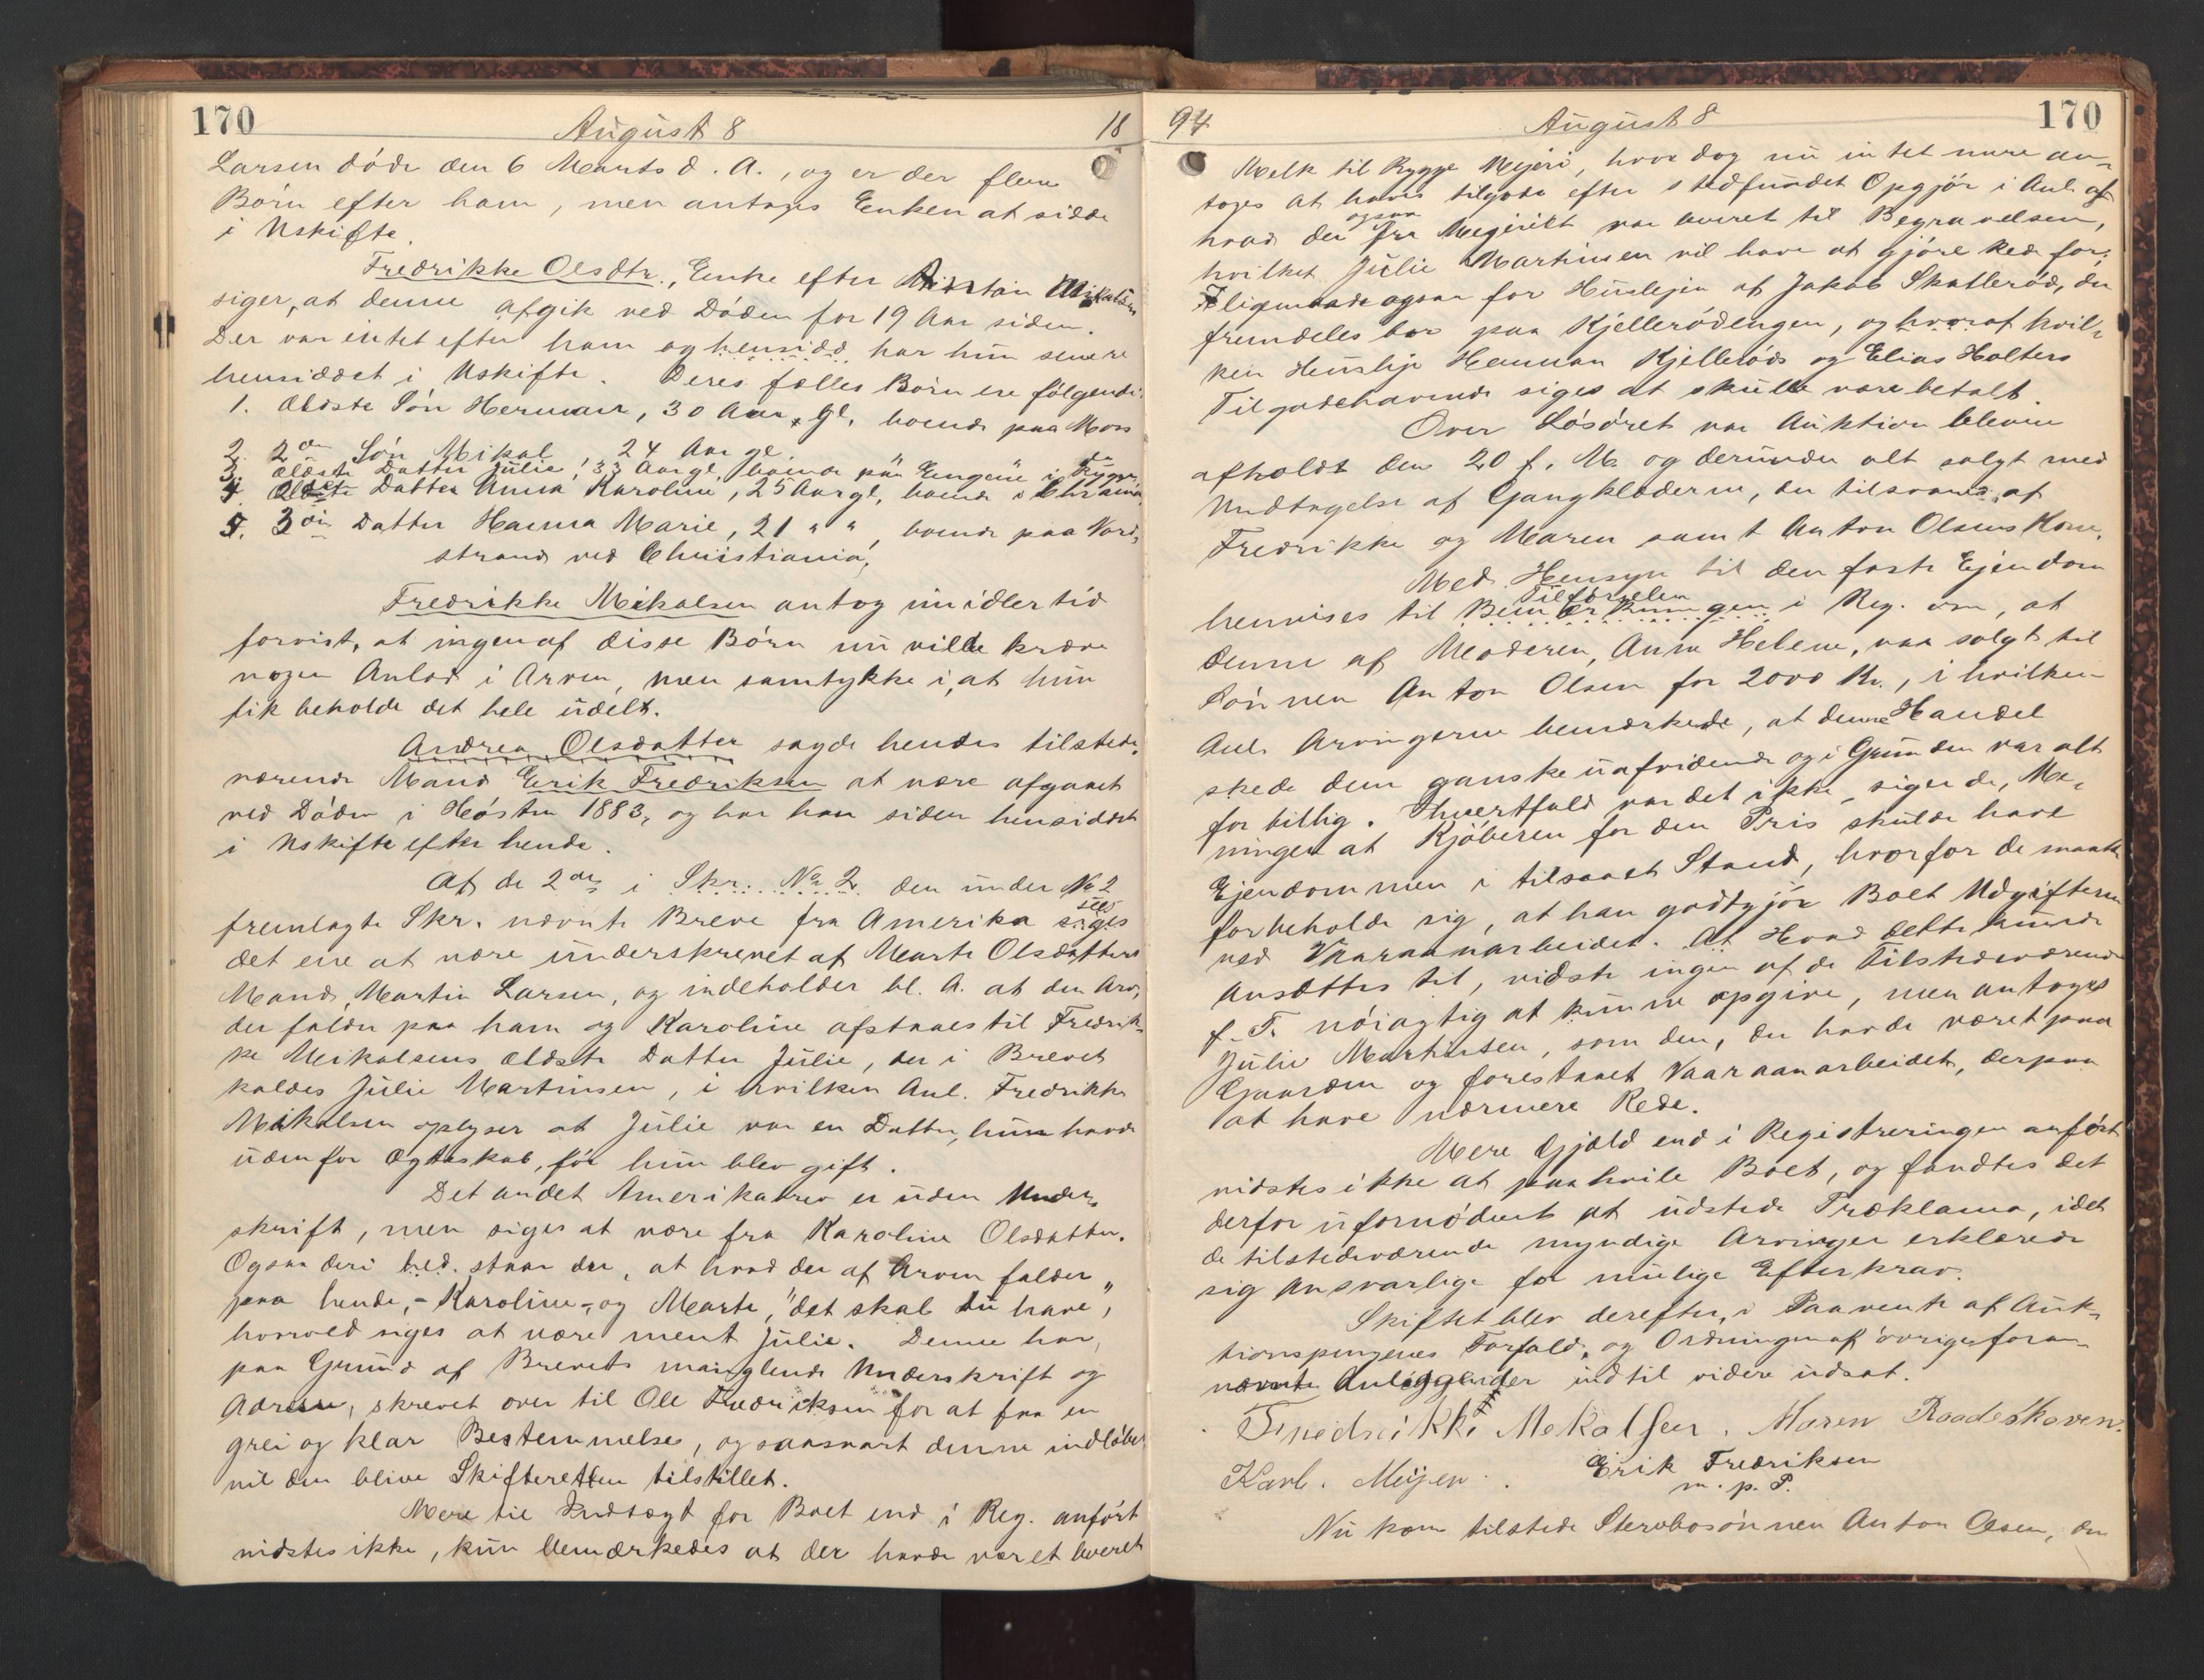 170 August 8 18
Larsen døde den 6 Marts d. A., og er der flere
Børn efter ham, men antages Enken at sidde
i Uskifte.
Fredrikke Olsdtr., Enke efter
siger, at denne afgik ved Døden for 19 Aar siden.
Der var intet efter ham og hensidd har hun senere
hensiddet i Uskifte. Deres fælles Børn ere følgende:
1. Ældste Søn Herman, 30 Aar gl., boende paa Moss
2. 2den Søn Mikal, 24 Aar gl.
3. ældste Datter Julie, 33 Aar gl, boende paa Engene i Rygge,
4. Datter Anna Karoline, 25 Aar gl, boende i Chrania
5. 3die Datter Hanna Marie, 21 " ", boende paa Nord-
strand ved Christiania.
Fredrikke Mikalsen antog imidlertid
forvist, at ingen af disse Børn nu vilde kræve
nogen Anlod i Arven, men samtykke i, at hun
fik beholde det hele udelt.
Andrea Olsdatter sagde hendes tilstede-
værende Mand Erik Fredriksen at være afgaaet
ved Døden i Høsten 1883, og har han siden hensiddet
i Uskifte efter hende.
Af de 2de i Skr. No 2 den under No 2
fremlagte Skr. nævnte Breve fra Amerika siges
det ene at være underskrevet af Marte Olsdatters
Mand, Martin Larsen, og indeholder bl. A. at den Arv,
der falder paa ham og Karoline afstaaes til Fredrik-
ke Mikalsens ældste Datter Julie, der i Brevet
kaldes Julie Martinsen, i hvilken Anl. Fredrikke
Mikalsen oplyser at Julie var en Datter, hun havde
udenfor Ægteskab, før hun blev gift.
Det andet Amerikabrev er uden Under-
skrift, men siges at være fra Karoline Olsdatter.
Ogsaa deri hed. staar der, at hvad der af Arven falder
paa hende, - Karoline - og Marte, "det skal du have",
hvorved siges at være ment Julie. Denne har,
paa Grund af Brevets manglende Underskrift og
Adresse, skrevet over til Ole Fredriksen for at faa en
grei og klar Bestemmelse, og saasnart denne indløber
vil den blive Skifteretten tilstillet.
Mere til Indtægt for Boet end i Reg. anført
vidstes ikke, kun bemærkedes at der havde været leveret
94 August 8 170
Melk til Rygge Mejeri, hvor dog nu intet mere an-
tages at haves tilgode efter stedfundet Opgjør i Anl. af
hvad der ogsaa fra Mejeriet var leveret til Begravelsen,
hvilket Julie Martinsen vil have at gjøre Rede for;
ligemaade ogsaa for Huslejen af Jakob Skatterød, der
fremdeles bor paa Kjellerødengen, og hvoraf hvil-
ken Husleje Herman Kjellerøds og Elias Holters
Tilgodehavende siges at skulle være betalt.
Over Løsøret var Auktion bleven
afholdt den 20 f. M. og derunder alt solgt med
Undtagelse af Gangklæderne, der tilsvares af
Fredrikke og Maren samt Anton Olsens Kone.
Med Hensyn til den faste Ejendom
henvises til Bemærkningen Tilførselen i Reg. om, at
denne af Moderen, Anne Helene, var solgt til
Sønnen Anton Olsen for 2000 Kr., i hvilken
Anl. Arvingerne bemærkede, at denne Handel
skede dem ganske uafvidende og i Grunden var alt
for billig. Ihvertfald var det ikke, siger de, Me-
ningen at Kjøberen for den Pris skulde have
Ejendommen i tilsaaet Stand, hvorfor de maatte
forbeholde sig, at han godtgjør Boet Udgifterne
ved Vaaraanarbeidet. At Hvad dette kunde
ansættes til, vidste ingen af de Tilstedeværende
f. T. nøiagtig at kunne opgive, men antoges
Julie Martinsen, som den, der havde været paa
Gaarden og forestaaet Vaaraanarbeidet, derpaa
at have nærmere Rede.
Mere Gjæld end i Registreringen anført
vidstes ikke at paahvile Boet, og fandtes det
derfor ufornødent at udstede Præklama, idet
de tilstedeværende myndige Arvinger erklærede
sig ansvarlige for mulige Efterkrav.
Skiftet blev derefter, i Paavente af Auk-
tionspengenes Forfald, og Ordningen af øvrige foran-
nævnte Anliggender indtil videre udsat.
Fredrikke Mekalsen. Maren Raadeskoven.
Karl. Erik Fredriksen
m. p. P.
Nu kom tilstede Stervbosønnen Anton Olsen, der